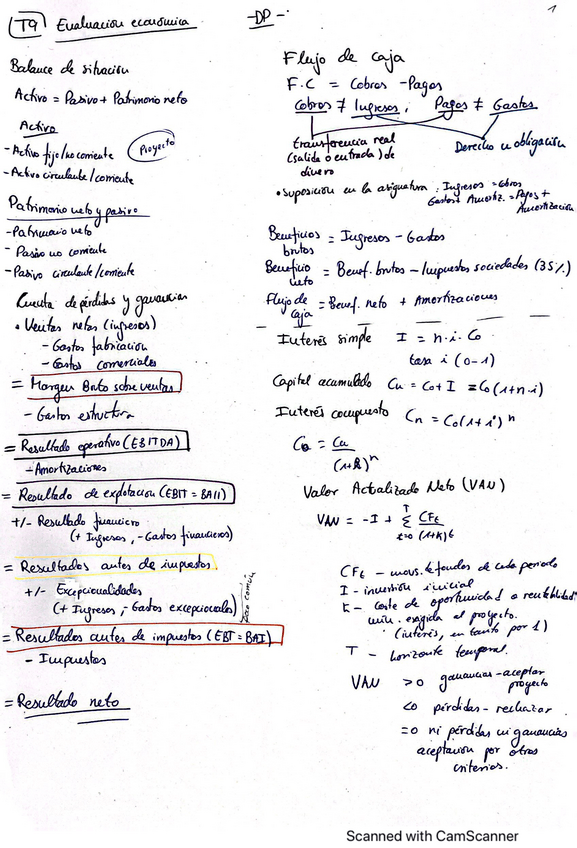 T9 Evaluación económica
-DP-
1
Balance de situación
Activo = Pasivo + Patrimonio neto
Activo
- Activo fijo/no corriente
Proyecto
- Activo circulante/corriente
Patrimonio neto y pasivo
- Patrimonio neto
- Pasivo no corriente
- Pasivo circulante/corriente
Cuenta de pérdidas y ganancias
• Ventas netas (ingresos)
- Gastos fabricación
- Gastos comerciales
= Margen Bruto sobre ventas
- Gastos estructura
= Resultado operativo (EBITDA)
- Amortizaciones
= Resultado de explotación (EBIT = BAII)
+/- Resultado financiero
(+ Ingresos, - Gastos financieros)
= Resultados antes de impuestos.
+/- Excepcionalidades
(+ Ingresos, - Gastos excepcionales)
poco común
= Resultados antes de impuestos (EBT = BAI)
- Impuestos
= Resultado neto
Flujo de caja
F.C = Cobros - Pagos
Cobros ≠ Ingresos, Pagos ≠ Gastos
transferencia real
(salida o entrada) de
dinero
Derecho u obligación
• Suposición en la asignatura: Ingresos = Cobros
Gastos + Amortiz. = Pagos +
Amortización
Beneficios brutos = Ingresos - Gastos
Beneficio neto = Benef. brutos - Impuestos sociedades (35%)
Flujo de caja = Benef. neto + Amortizaciones
Interés simple I = n·i·C0
tasa i (0-1)
Capital acumulado Cn = C0 + I = C0(1+n·i)
Interés compuesto Cn = C0(1+i)^n
C0 = Cn/(1+k)^n
Valor Actualizado Neto (VAN)
VAN = -I + Σ(t=0, T) CFt/(1+k)^t
CFt - movs. de fondos de cada periodo
I - inversión inicial
k - coste de oportunidad o rentabilidad
mín. exigida al proyecto.
(interés, en tanto por 1)
T - horizonte temporal.
VAN >0 ganancias - aceptar
proyecto
<0 pérdidas - rechazar
=0 ni pérdidas ni ganancias
aceptación por otros
criterios.
Scanned with CamScanner